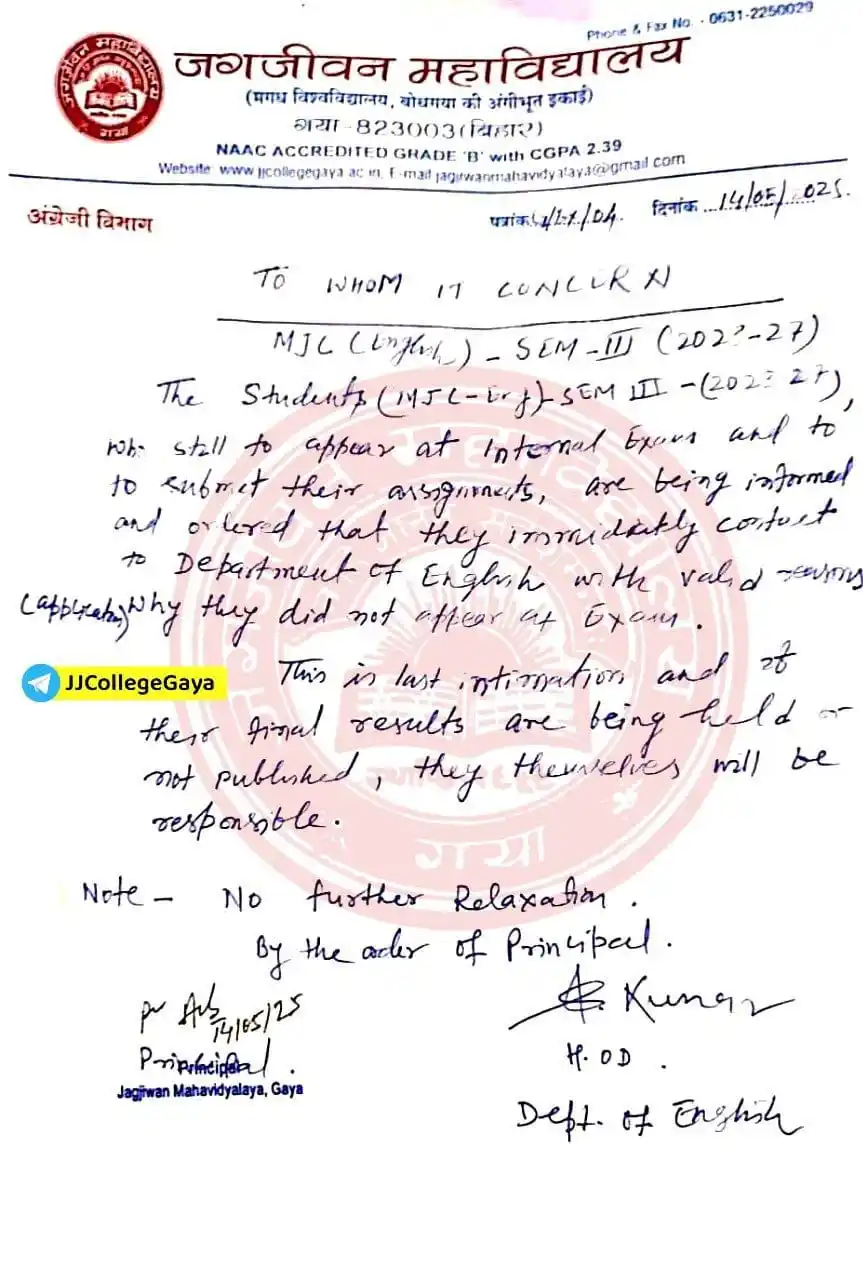 Phone & Fax No. - 0631-2250029
जगजीवन महाविद्यालय
(मगध विश्वविद्यालय, बोधगया की अंगीभूत इकाई)
गया -823003 (बिहार)
NAAC ACCREDITED GRADE 'B' with CGPA 2.39
Website: www.jjcollegegaya.ac.in, E-mail jagjiwanmahavidyalaya@gmail.com
अंग्रेजी विभाग
पत्रांक /04. दिनांक 14/05/025.
TO WHOM IT CONCERN
MJC (English) - SEM - III (2023-27)
The Students (MJC-Eng)-SEM III - (2023 27),
who still to appear at Internal Exam and to
to submit their assignments, are being informed
and ordered that they immidiatly contact
to Department of English with valid reasons
(application) Why they did not appear at Exam.
JJCollegeGaya
This is last intimation and if
their final results are being held or
not published, they themselves will be
responsible.
Note - No further Relaxation.
By the order of Principal.
14/05/25
Kumar
Principal.
H.OD.
Principal
Jagjiwan Mahavidyalaya, Gaya
Dept. of English